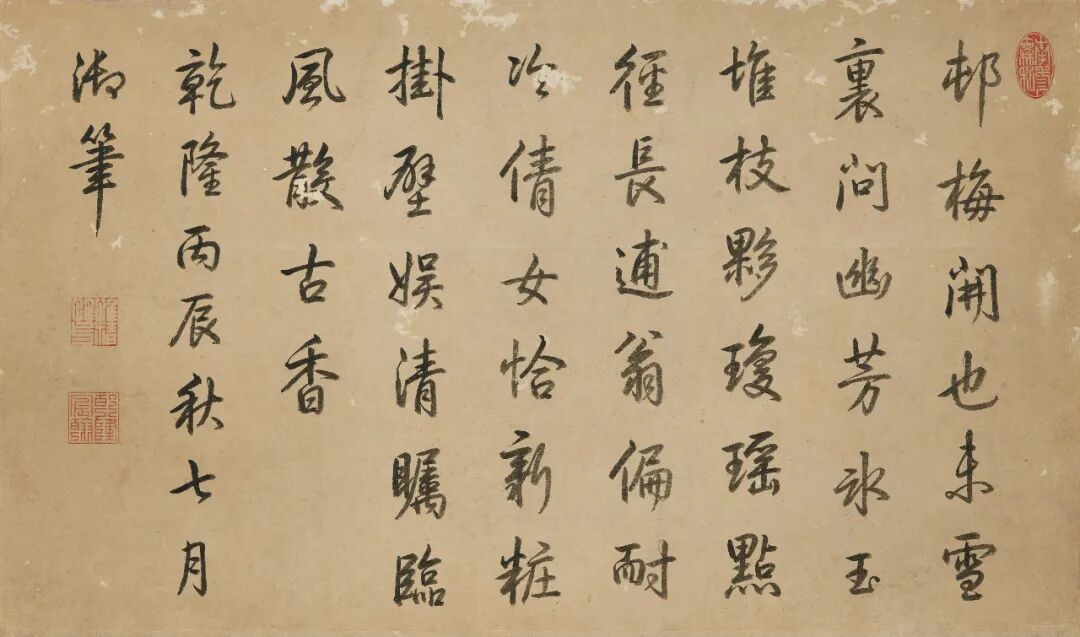 邨梅開也未雪
裏問幽芳冰玉
堆枝夥瓊瑶點
徑長逋翁偏耐
冷倩女恰新粧
掛壁娱清矚臨
風散古香
乾隆丙辰秋七月
御筆
乾隆宸翰